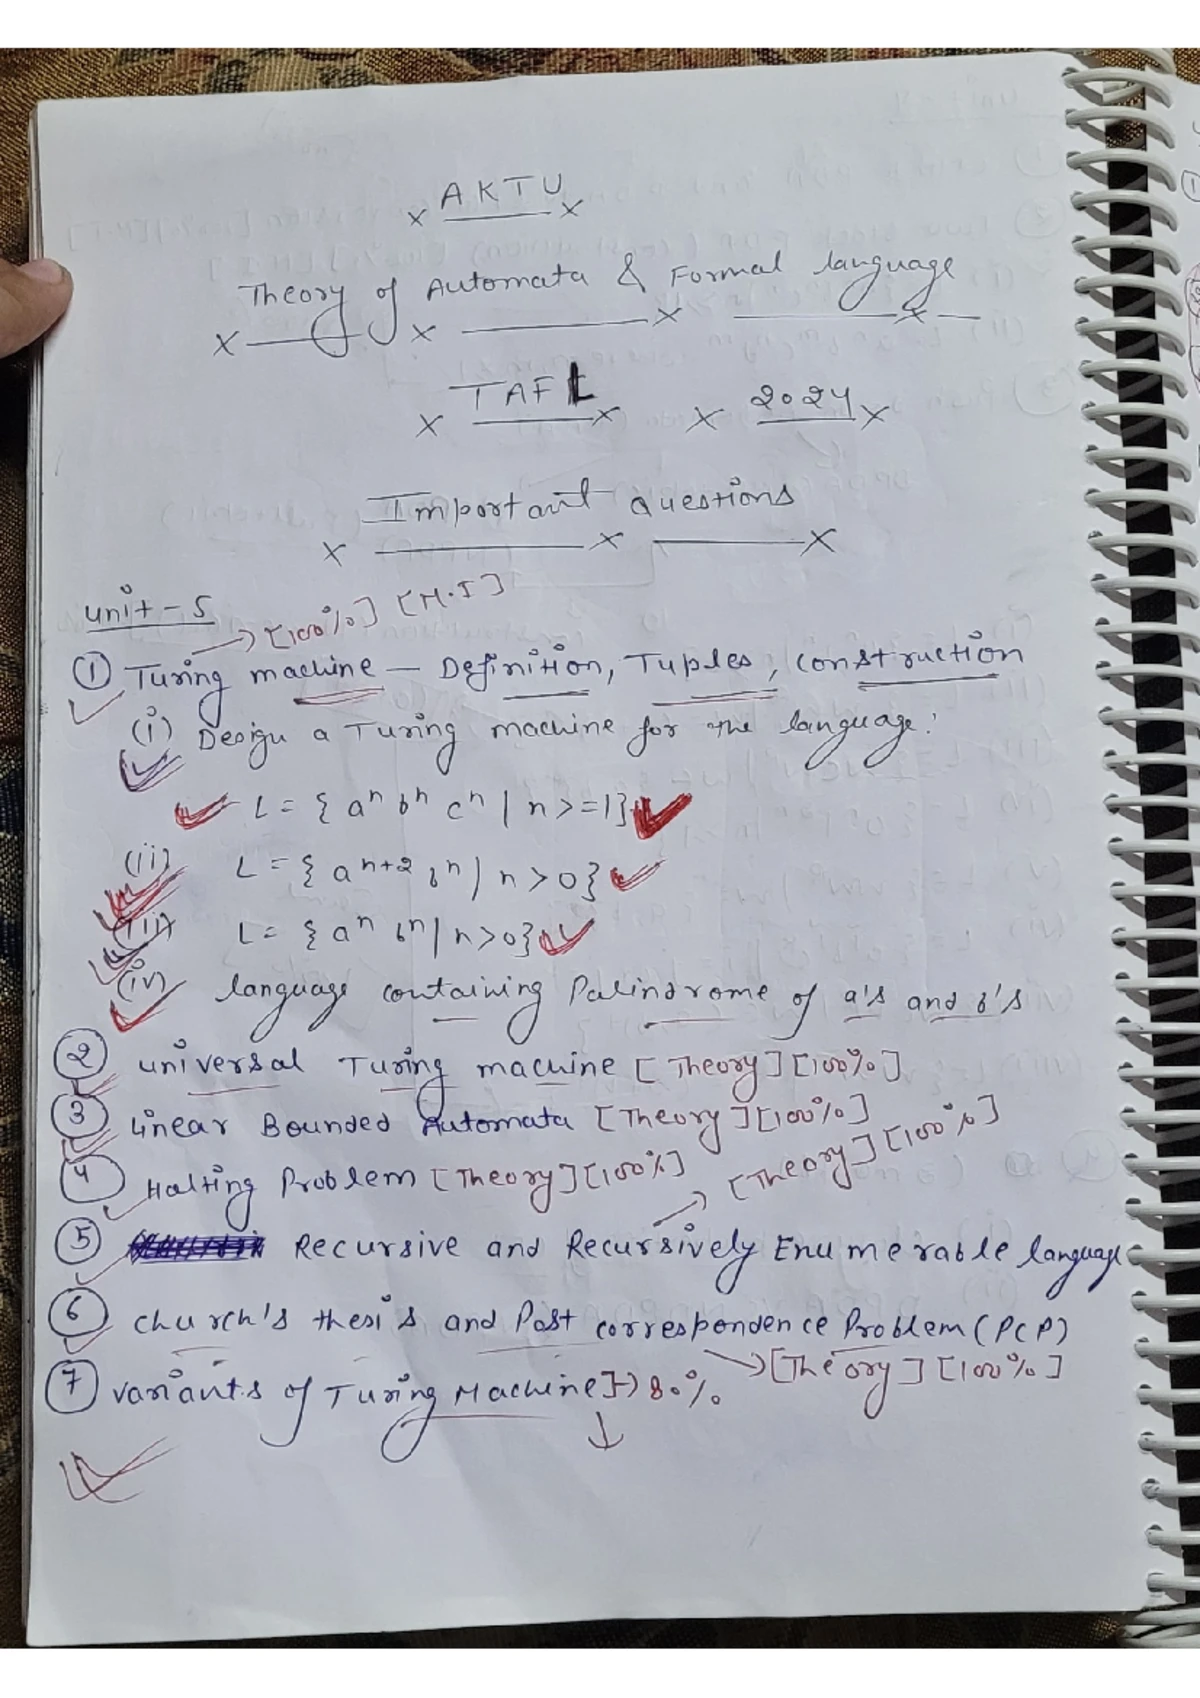 AKTU
Theory of Automata & Formal language
TAFL 2024
Important questions
unit-5
→ [100%] [M.I]
① Turing machine — Definition, Tuples, construction
(i) Design a Turing machine for the language:
L = { aⁿ bⁿ cⁿ | n >= 1}
(ii) L = { aⁿ⁺² bⁿ | n > 0}
(iii) L = { aⁿ bⁿ | n > 0}
(iv) language containing Palindrome of a's and b's
② universal Turing machine [Theory] [100%]
③ linear Bounded Automata [Theory] [100%]
④ Halting Problem [Theory] [100%]
→ [Theory] [100%]
⑤ Recursive and Recursively Enumerable language
⑥ church's thesis and Post correspondence Problem (PCP)
→ [Theory] [100%]
⑦ variants of Turing Machine] → 80%